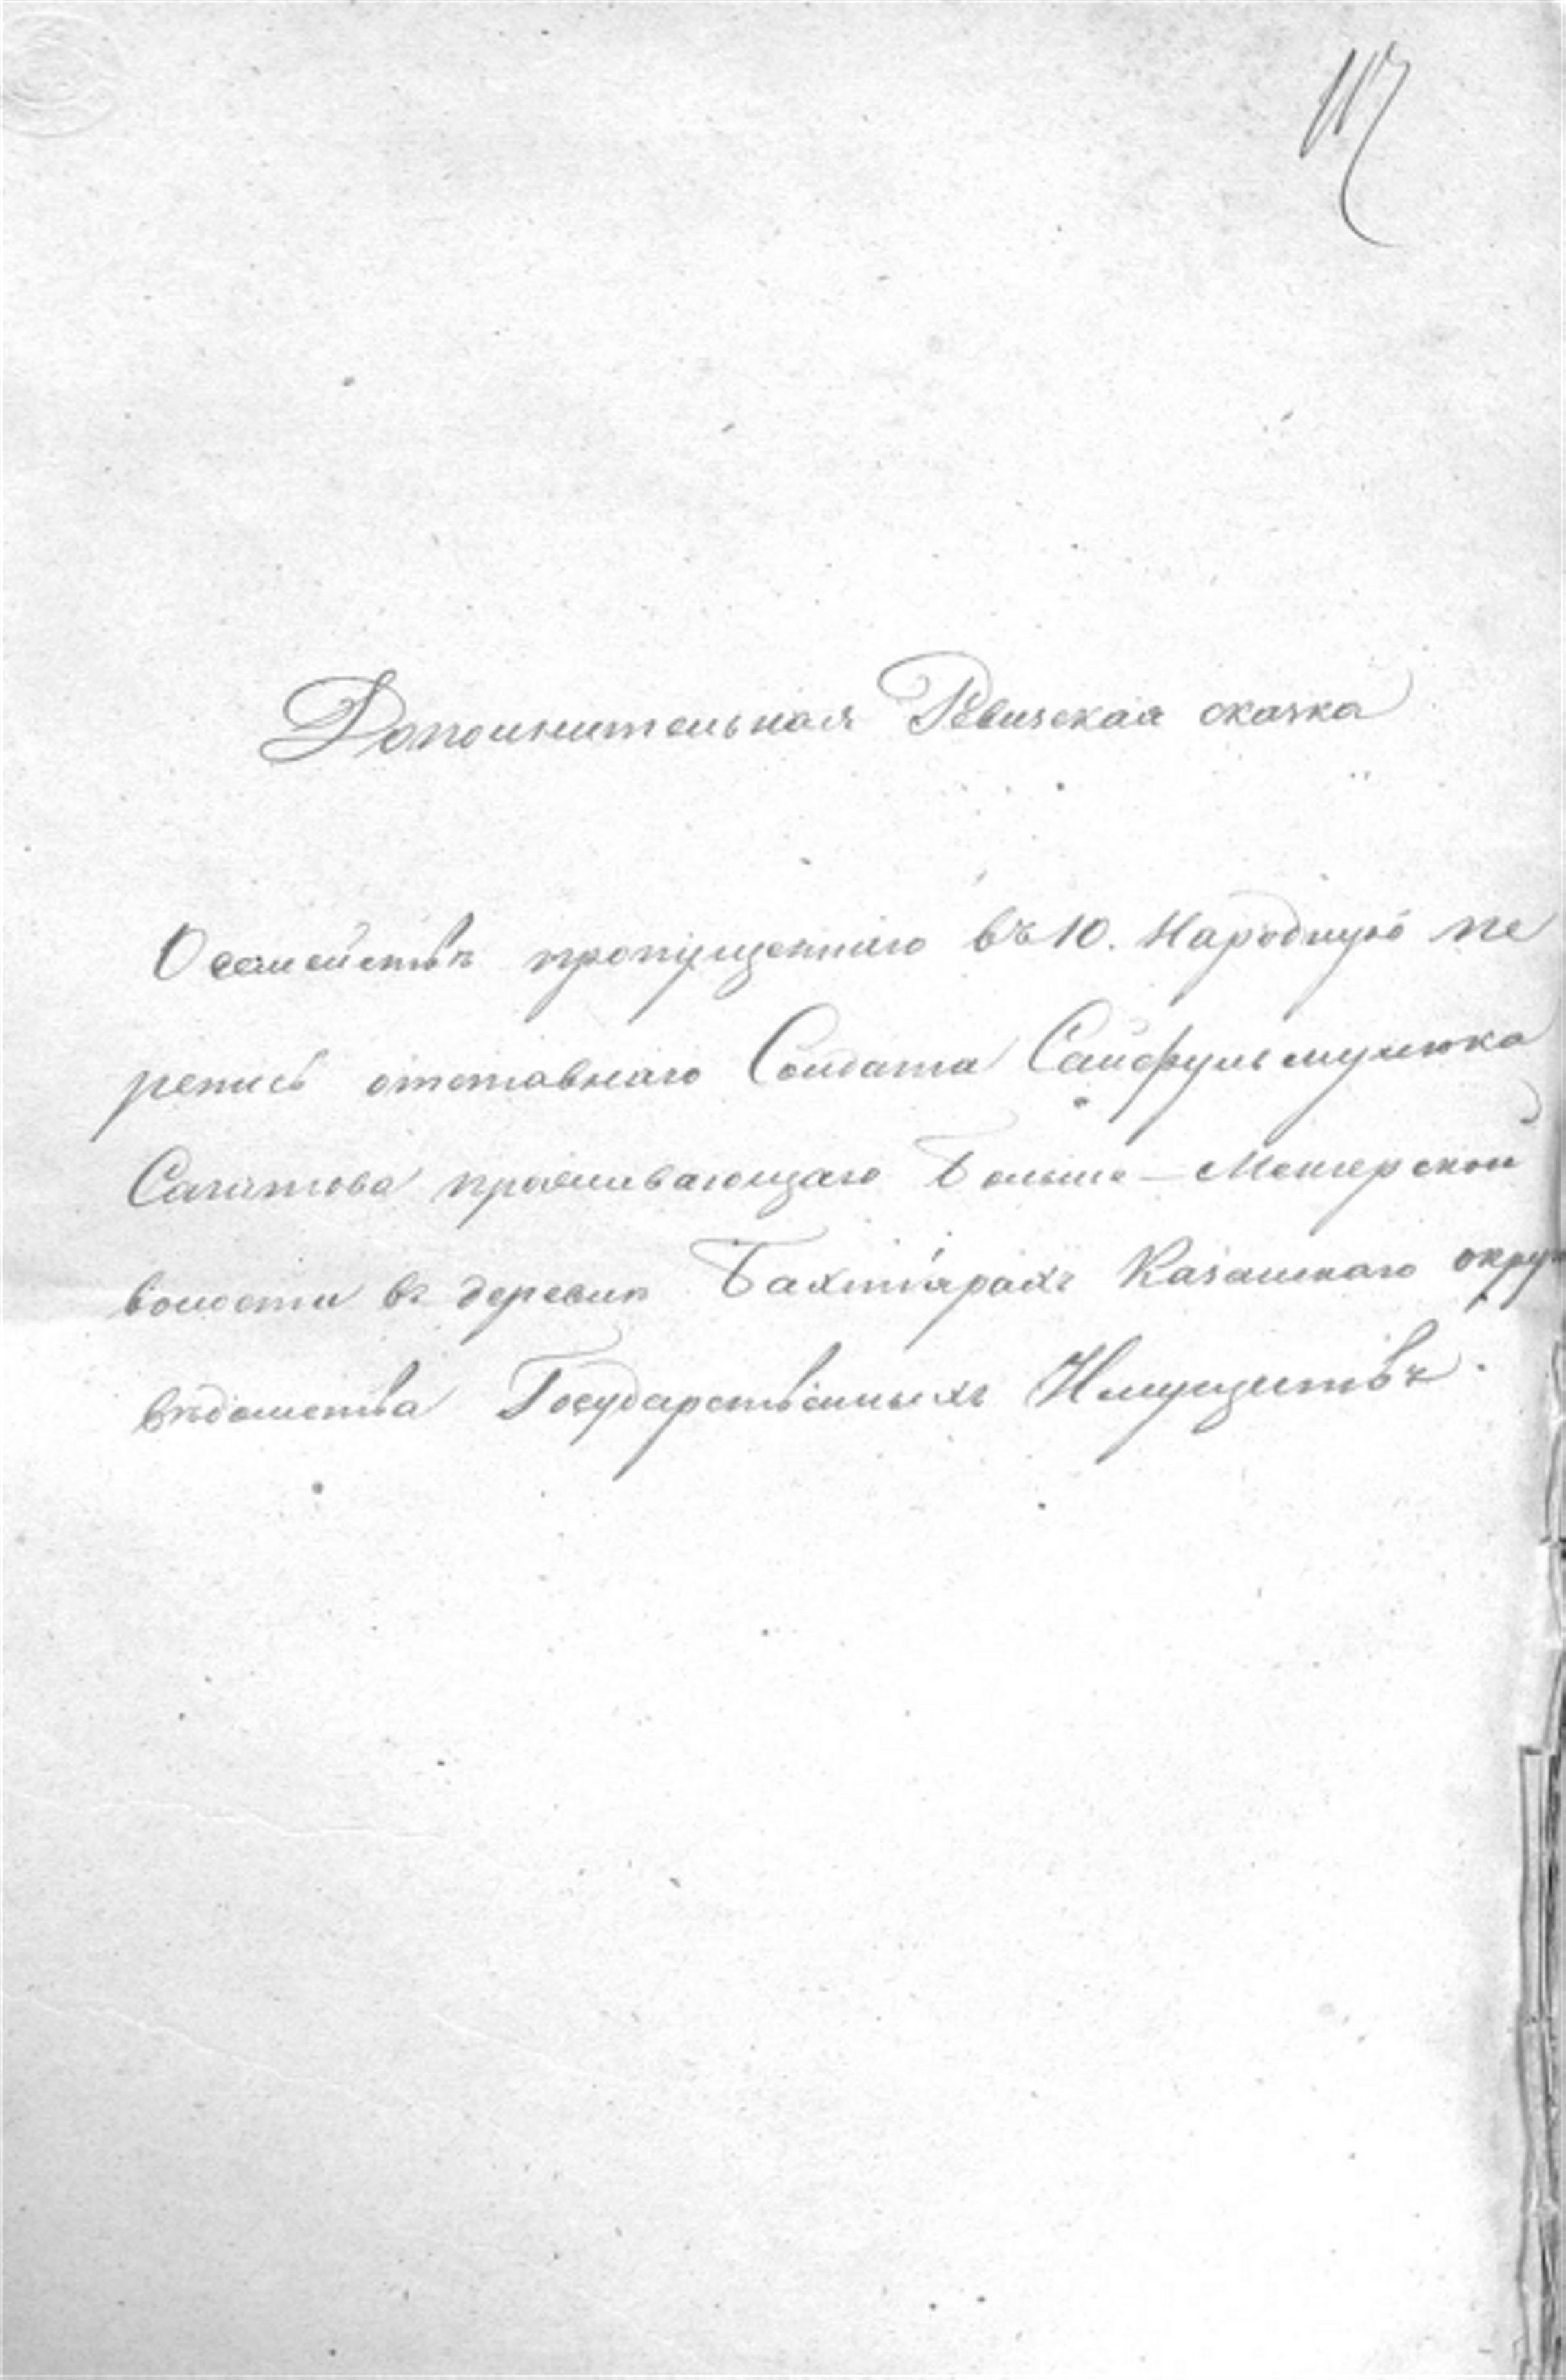 117
Дополнительная Ревизская сказка
О семействѣ пропущеннаго въ 10. Народную пе
репись отставнаго Солдата Сайфульмулюка
Сагитова проживающаго Больше-Менгерской
волости въ деревнѣ Бахтіярахъ Казанскаго округ
вѣдомства Государственныхъ Имуществъ.